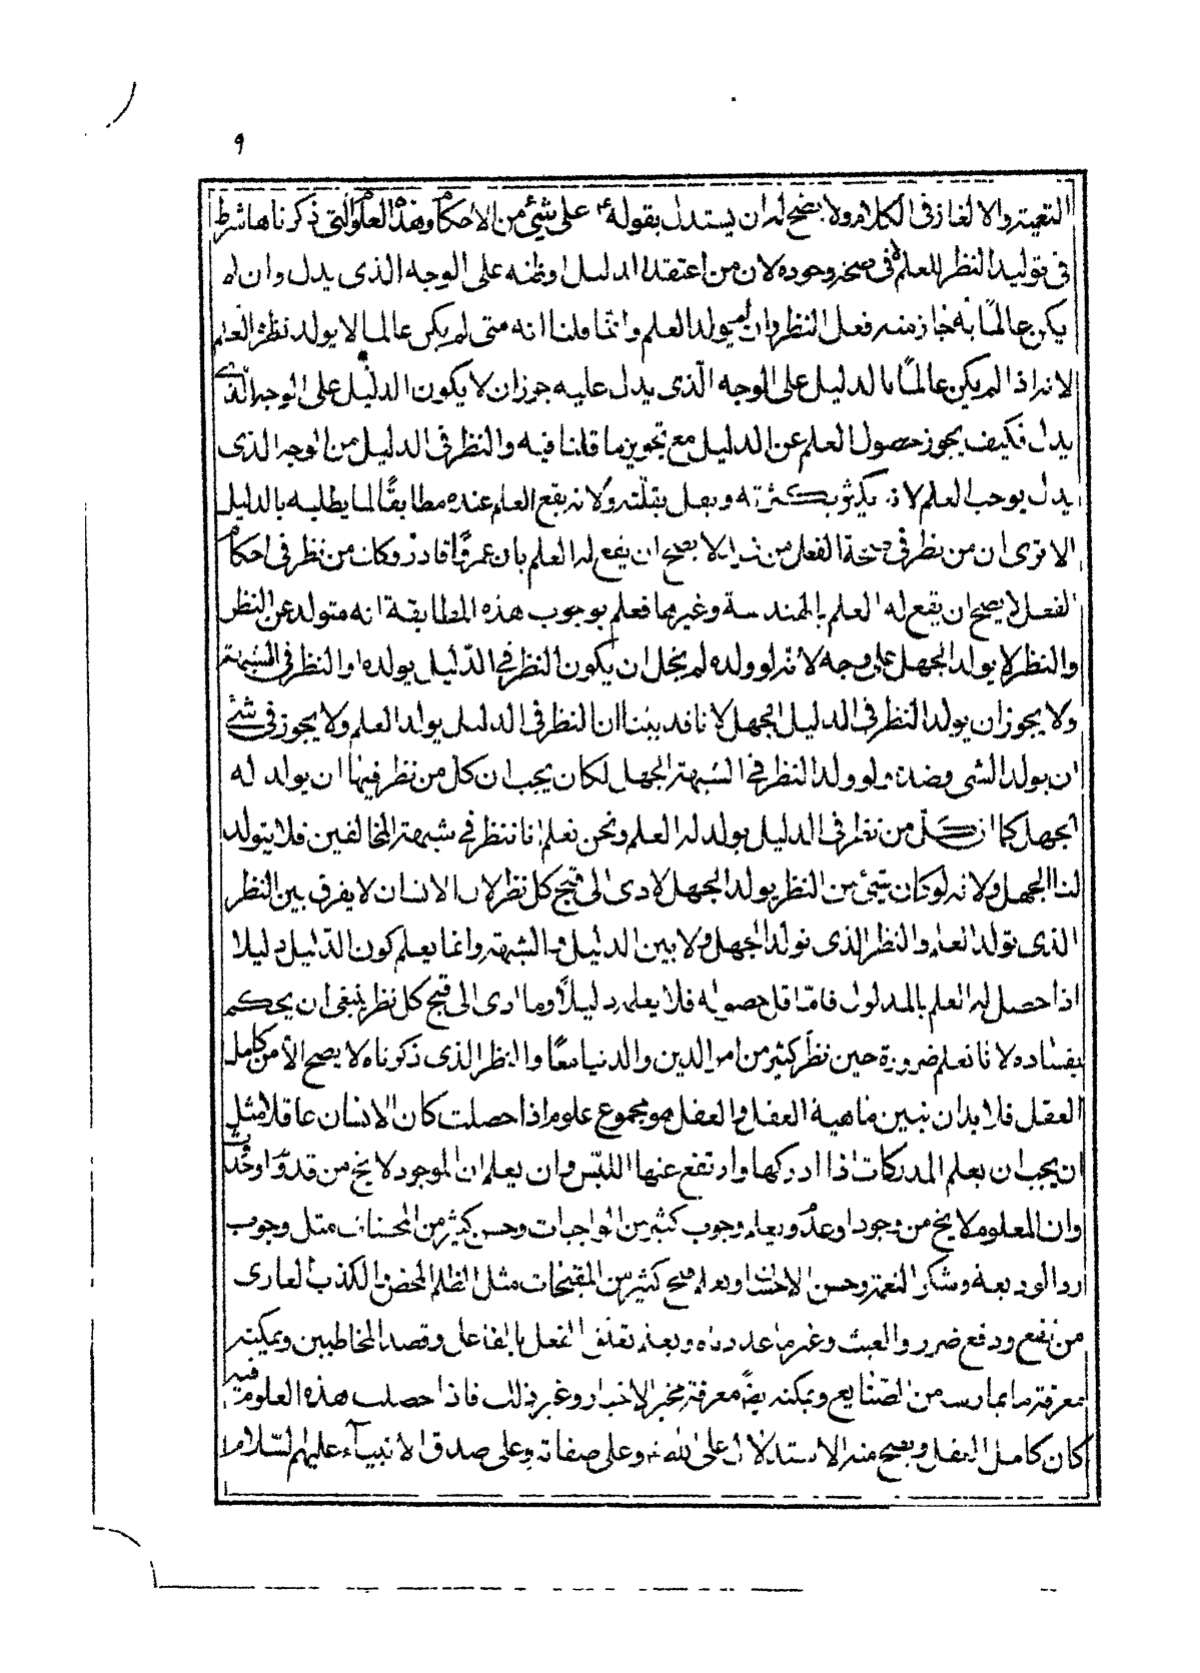 ٩
التعمية والالغاز فى الكلام ولا يصح له ان يستدل بقوله ع على شيئ من الاحكام وهذه العلوم التى ذكرناها شرط
فى توليد النظر للعلم لا فى صحة وجوده لان من اعتقد الدليل او ظنه على الوجه الذى يدل وان لم
يكن عالمًا به جاز منه فعل النظر وان لم يولد العلم وانما قلنا انه متى لم يكن عالما لا يولد نظره العلم
لانه اذا لم يكن عالمًا بالدليل على الوجه الّذى يدل عليه جوز ان لا يكون الدليل على الوجه الّذى
يدل فكيف يجوز حصول العلم عن الدليل مع تجويز ما قلنا فيه والنظر فى الدليل من الوجه الذى
يدل يوجب العلم لانه يكثر بكثرته ويقل بقلّته ولانه يقع العلم عنده مطابقًا لما يطلبه بالدليل
الا ترى ان من نظر فى صحة الفعل من زيد لا يصح ان يقع له العلم بان عمروًا قادر وكان من نظر فى احكام
الفعل لا يصح ان يقع له العلم بالهندسة وغيرها فعلم بوجوب هذه المطابقة انه متولد عن النظر
والنظر لا يولد الجهل على وجه لانه لو ولده لم يخل ان يكون النظر فى الدّليل يولده او النظر فى الشبهة
ولا يجوز ان يولد النظر فى الدليل الجهل لانا قد بينا ان النظر فى الدليل يولد العلم ولا يجوز فى شئ
ان يولد الشى وضده ولو ولد النظر فى الشبهة الجهل لكان يجب ان كل من نظر فيها ان يولد له
الجهل كما ان كلّ من نظر فى الدليل يولد له العلم ونحن نعلم انا ننظر فى شبهة المخالفين فلا يتولد
لنا الجهل ولانه لو كان شيئ من النظر يولد الجهل لادى الى قبح كل نظر لان الانسان لا يفرق بين النظر
الذى يولد العلم والنظر الذى يولد الجهل ولا بين الدليل والشبهة وانما يعلم كون الدّليل دليلا
اذا حصل له العلم بالمدلول فامّا قبل حصوله فلا يعلمه دليلًا وما ادى الى قبح كل نظر ينبغى ان يحكم
بفساده لانا نعلم ضرورة حسن نظر كثير من امر الدين والدنيا معًا والنظر الذى ذكرناه لا يصح الا من كامل
العقل فلا بد ان نبين ماهية العقل والعقل هو مجموع علوم اذا حصلت كان الانسان عاقلا مثل
ان يجب ان يعلم المدركات اذا ادركها وارتفع عنها اللبّس وان يعلم ان الموجود لا يخ من قدم او حدوث
وان المعلوم لا يخ من وجود او عدم ويعلم وجوب كثير من الواجبات وحسن كثير من المحسنات مثل وجوب
رد الوديعة وشكر النعمة وحسن الاحسان ويعلم قبح كثير من المقبحات مثل الظلم المحض والكذب العارى
من نفع ودفع ضرر والعبث وغير ما عددناه ويعلم تعلق الفعل بالفاعل وقصد المخاطبين ويمكنه
معرفة ما يمارسه من الصّنايع ويمكنه ايضًا معرفة مخبر الاخبار وغير ذلك فاذا حصلت هذه العلوم فيه
كان كامل العقل ويصح منه الاستدلال على الله تع وعلى صفاته وعلى صدق الانبيآء عليهم السّلام